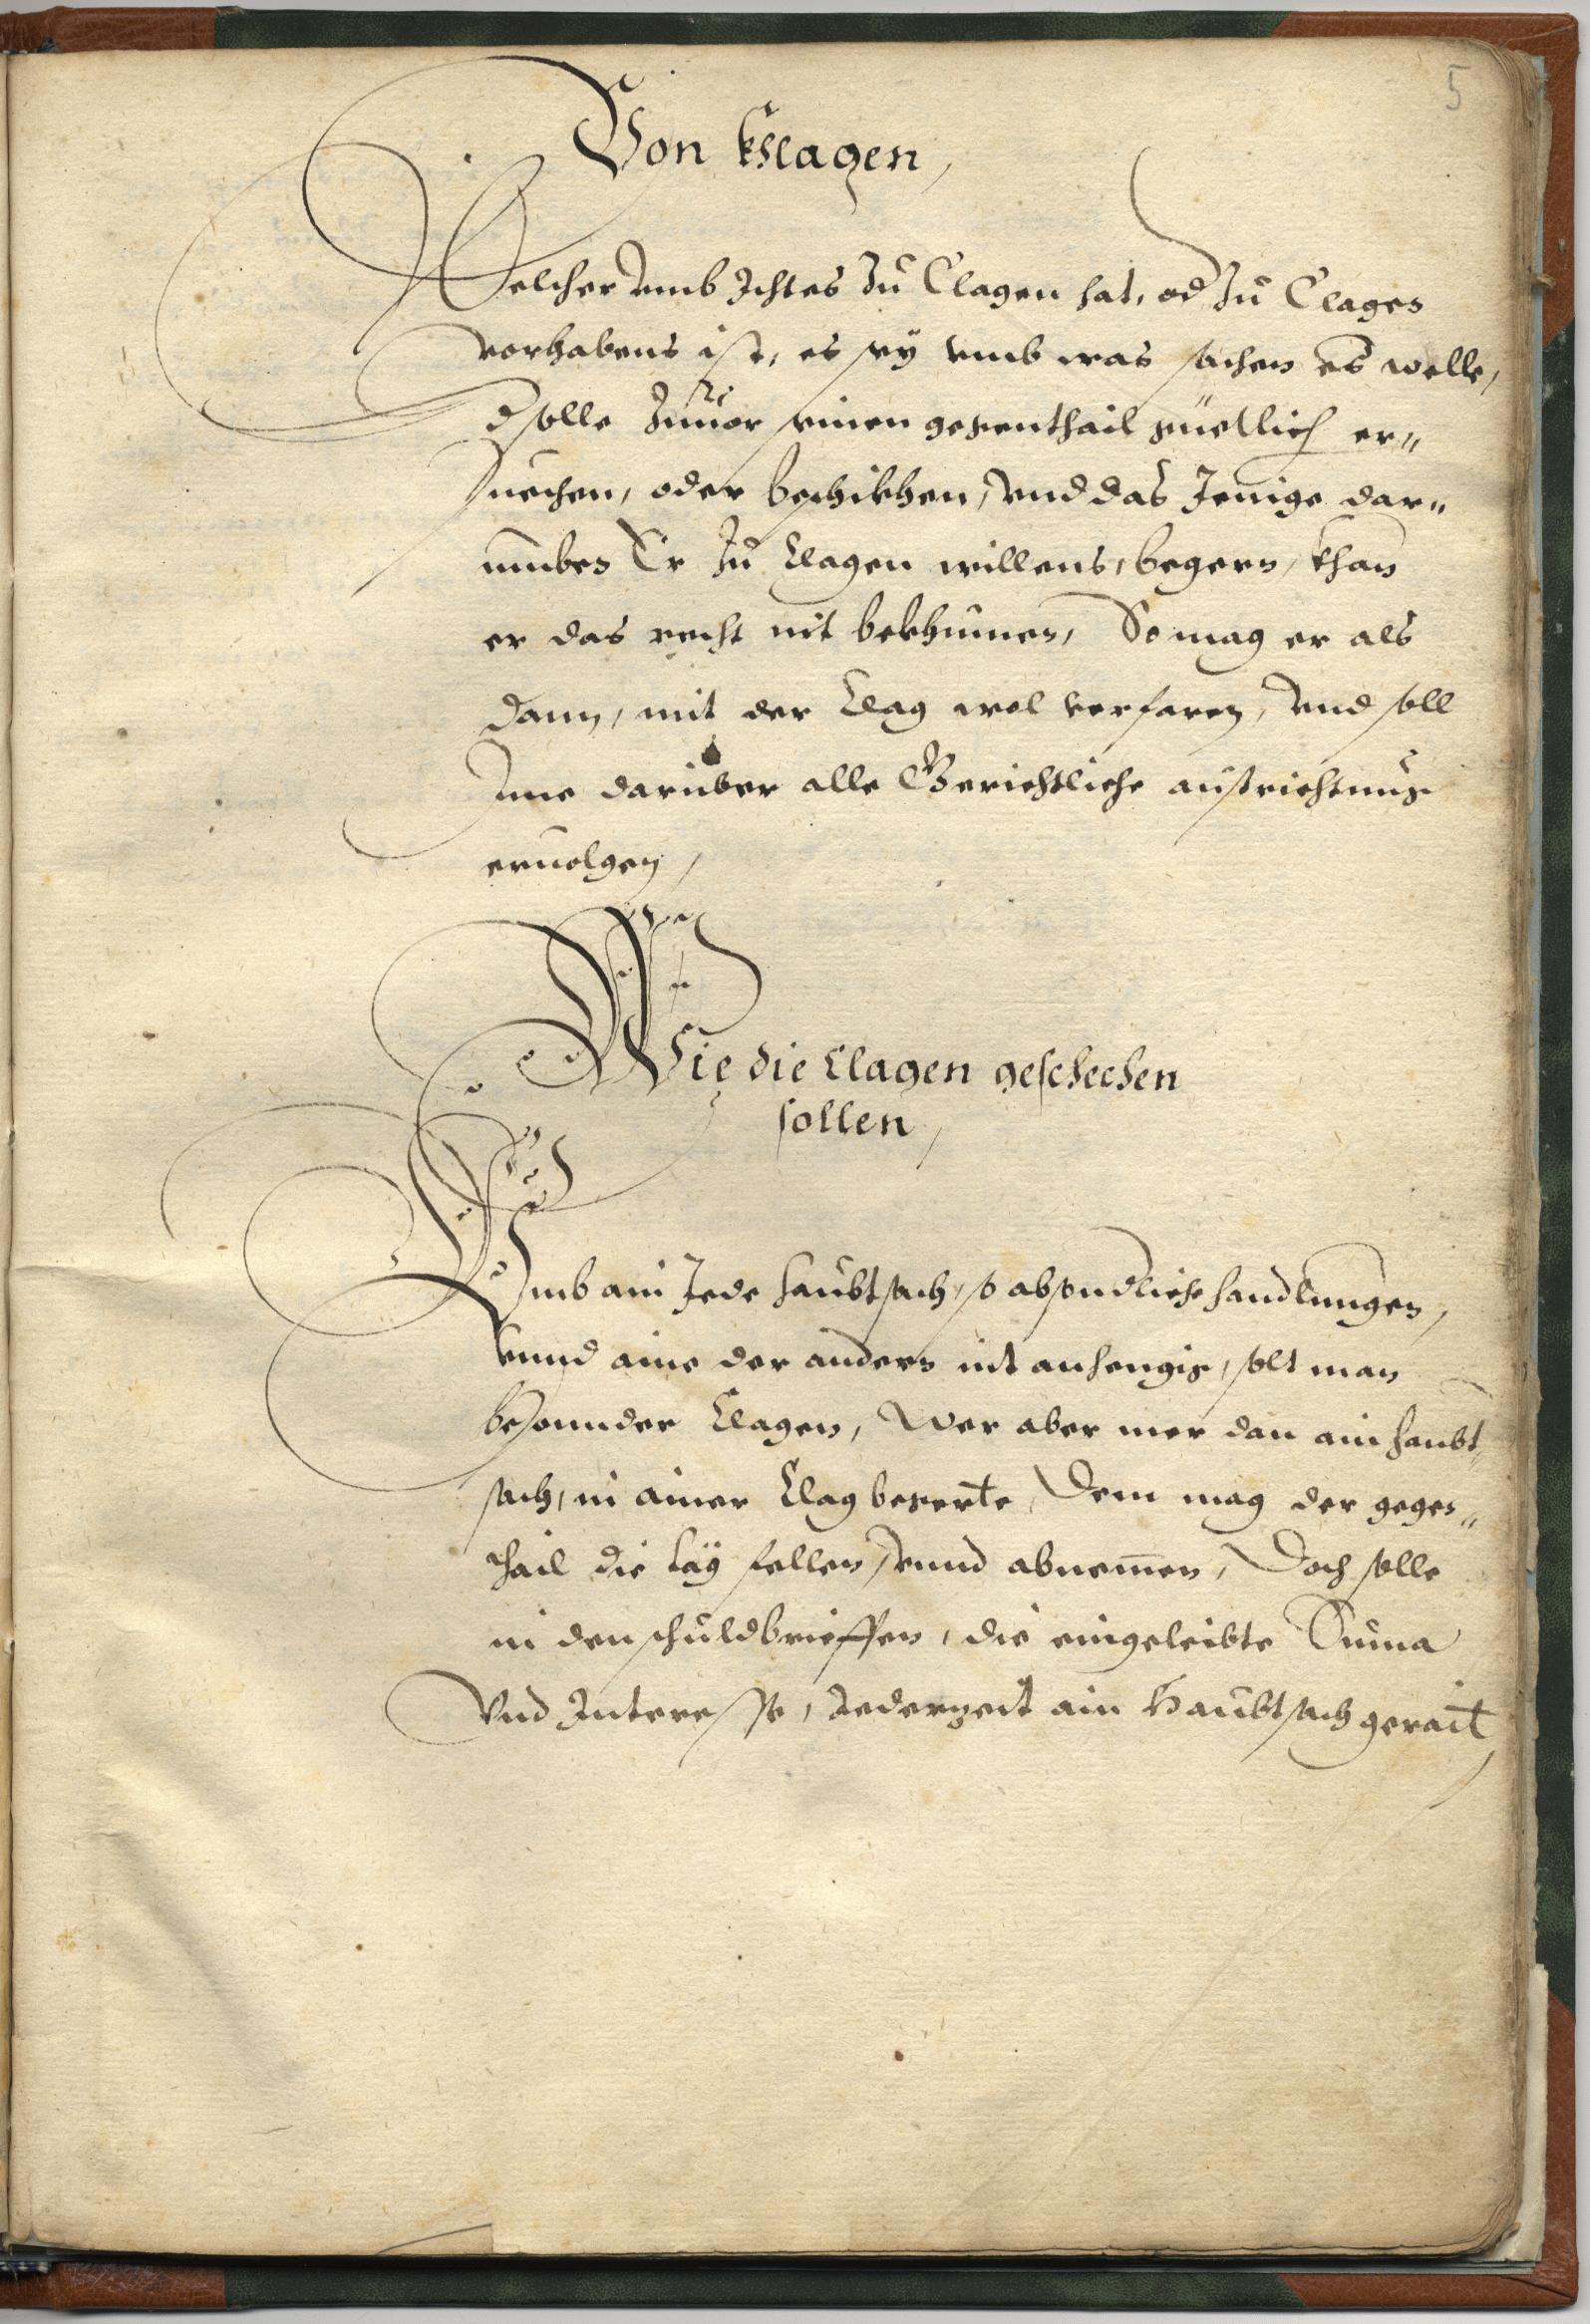 5
Von Khlagen,
Welcher vmb Ichtes zu Clagen hat, od zu Clagen
vorhabens ist, es sey vmb was sachen es welle,
d solle zuuor seinen gegenthail güetlich er„
suechen, oder beschikhen, vnd das Jenige dar„
umben Er zu Clagen willens, begern, khan
er das recht nit bekhumen, So mag er als
dann, mit der Clag wol verfaren, vnd soll
Ime darüber alle Gerichtliche außrichtung
eruolgen,
Wie die Clagen geschechen
sollen,
Vmb ain Jede haubtsach, so absondliche handlungen,
vnnd aine der andern nit anhengig, solt man
besonnder Clagen, Wer aber mer dan ain haubt„
sach, in ainer Clag begerte, Dem mag der gegen„
thail die Clag fellen, vnnd abnemen, Doch solle
in den schuldbrieffen, die eingeleibte Suma
Vnd Interesse, Jederzeit ain Haubtsach gerait